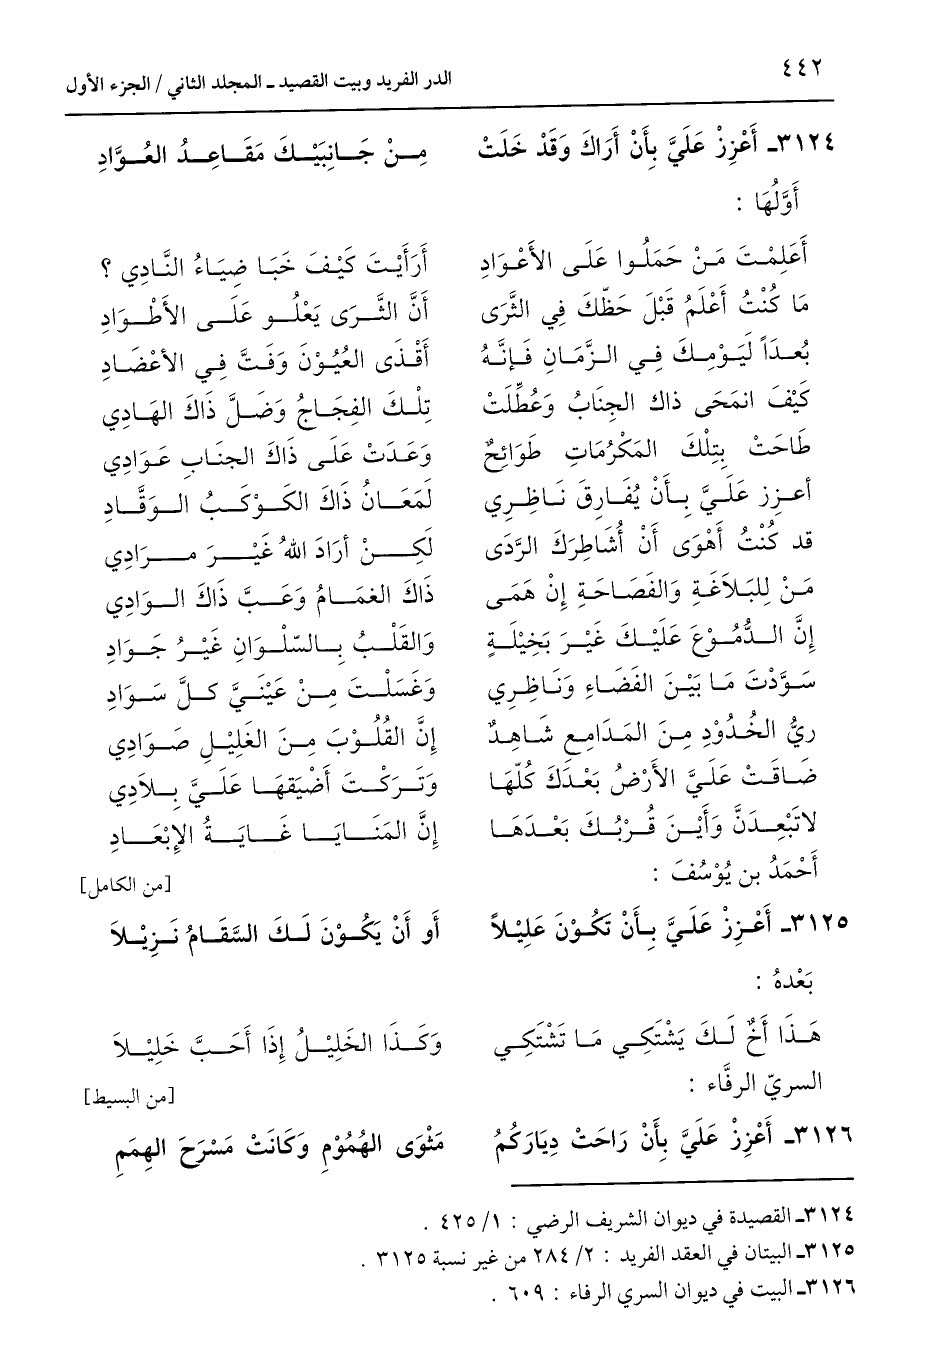 ٤٤٢
الدر الفريد وبيت القصيد ـ المجلد الثاني / الجزء الأول
٣١٢٤ـ أَعْزِزْ عَلَيَّ بِأَنْ أَرَاكَ وَقَدْ خَلَتْ مِنْ جَانِبَيْكَ مَقَاعِدُ العُوَّادِ
أَوَّلُهَا :
أَعَلِمْتَ مَنْ حَمَلُوا عَلَى الأَعْوَادِ أَرَأَيْتَ كَيْفَ خَبَا ضِيَاءُ النَّادِي ؟
مَا كُنْتُ أَعْلَمُ قَبْلَ حَظِّكَ فِي الثَّرَى أَنَّ الثَّرَى يَعْلُو عَلَى الأَطْوَادِ
بُعْدَاً لِيَوْمِكَ فِي الزَّمَانِ فَإِنَّهُ أَقْذَى العُيُوْنَ وَفَتَّ فِي الأَعْضَادِ
كَيْفَ انمَحَى ذاكَ الجِنَابُ وَعُطِّلَتْ تِلْكَ الفِجَاجُ وَضَلَّ ذَاكَ الهَادِي
طَاحَتْ بِتِلْكَ المَكْرُمَاتِ طَوَائِحٌ وَعَدَتْ عَلَى ذَاكَ الجنَابِ عَوَادِي
أعزِز عَلَيَّ بِأَنْ يُفَارِقَ نَاظِرِي لَمَعَانُ ذَاكَ الكَوْكَبِ الوَقَّادِ
قد كُنْتُ أَهْوَى أَنْ أُشَاطِرَكَ الرَّدَى لَكِنْ أَرَادَ اللهُ غَيْرَ مرَادِي
مَنْ لِلبَلاَغَةِ وَالفَصَاحَةِ إِنْ هَمَى ذَاكَ الغمَامُ وَعَبَّ ذَاكَ الوَادِي
إِنَّ الدُّمُوْعَ عَلَيْكَ غَيْرَ بَخِيْلَةٍ وَالقَلْبُ بِالسّلْوَانِ غَيْرُ جَوَادِ
سَوَّدْتَ مَا بَيْنَ الفَضَاءِ وَنَاظِرِي وَغَسَلْتَ مِنْ عَيْنَيَّ كلَّ سَوَادِ
رِيُّ الخُدُوْدِ مِنَ المَدَامِعِ شَاهِدٌ إِنَّ القُلُوْبَ مِنَ الغَلِيْلِ صَوَادِي
ضَاقَتْ عَلَيَّ الأَرْضُ بَعْدَكَ كُلّهَا وَتَرَكْتَ أَضْيَقهَا عَلَيَّ بِلاَدِي
لاَتَبْعِدَنَّ وَأَيْنَ قُرْبُكَ بَعْدَهَا إِنَّ المَنَايَا غَايَةُ الإِبْعَادِ
أَحْمَدُ بن يُوْسُفَ : [من الكامل]
٣١٢٥ـ أَعْزِزْ عَلَيَّ بِأَنْ تَكُوْنَ عَلِيْلاً أَو أَنْ يَكُوْنَ لَكَ السَّقَامُ نَزِيْلاَ
بَعْدهُ :
هَذَا أَخٌ لَكَ يَشْتَكِي مَا تَشْتَكِي وَكَذَا الخَلِيْلُ إِذَا أَحَبَّ خَلِيْلاَ
السريّ الرفَّاء : [من البسيط]
٣١٢٦ـ أَعْزِزْ عَلَيَّ بِأَنْ رَاحَتْ دِيَارَكُمُ مَثْوَى الهُمُوْمِ وَكَانَتْ مَسْرَحَ الهِمَمِ
٣١٢٤ـ القصيدة في ديوان الشريف الرضي : ١/ ٤٢٥ .
٣١٢٥ـ البيتان في العقد الفريد : ٢/ ٢٨٤ من غير نسبة ٣١٢٥ .
٣١٢٦ـ البيت في ديوان السري الرفاء : ٦٠٩ .